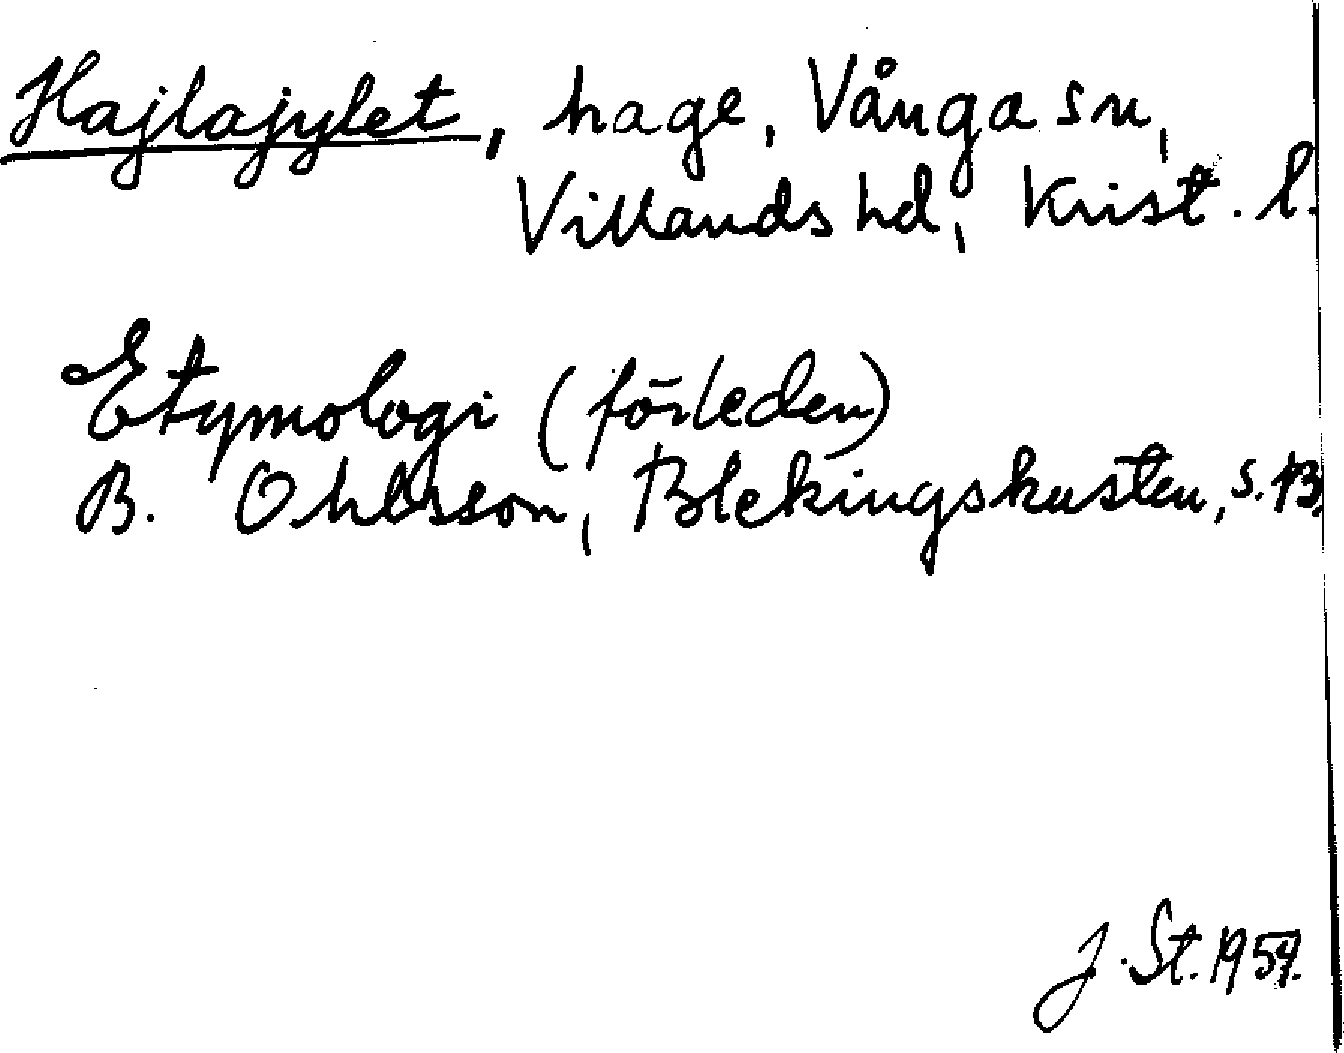 Hajlajylet, hage, Vånga sn,
Villands hd, Krist. l.
Etymologi (förleden)
B. Ohlsson, Blekingskusten, s.
J. St. 1959.